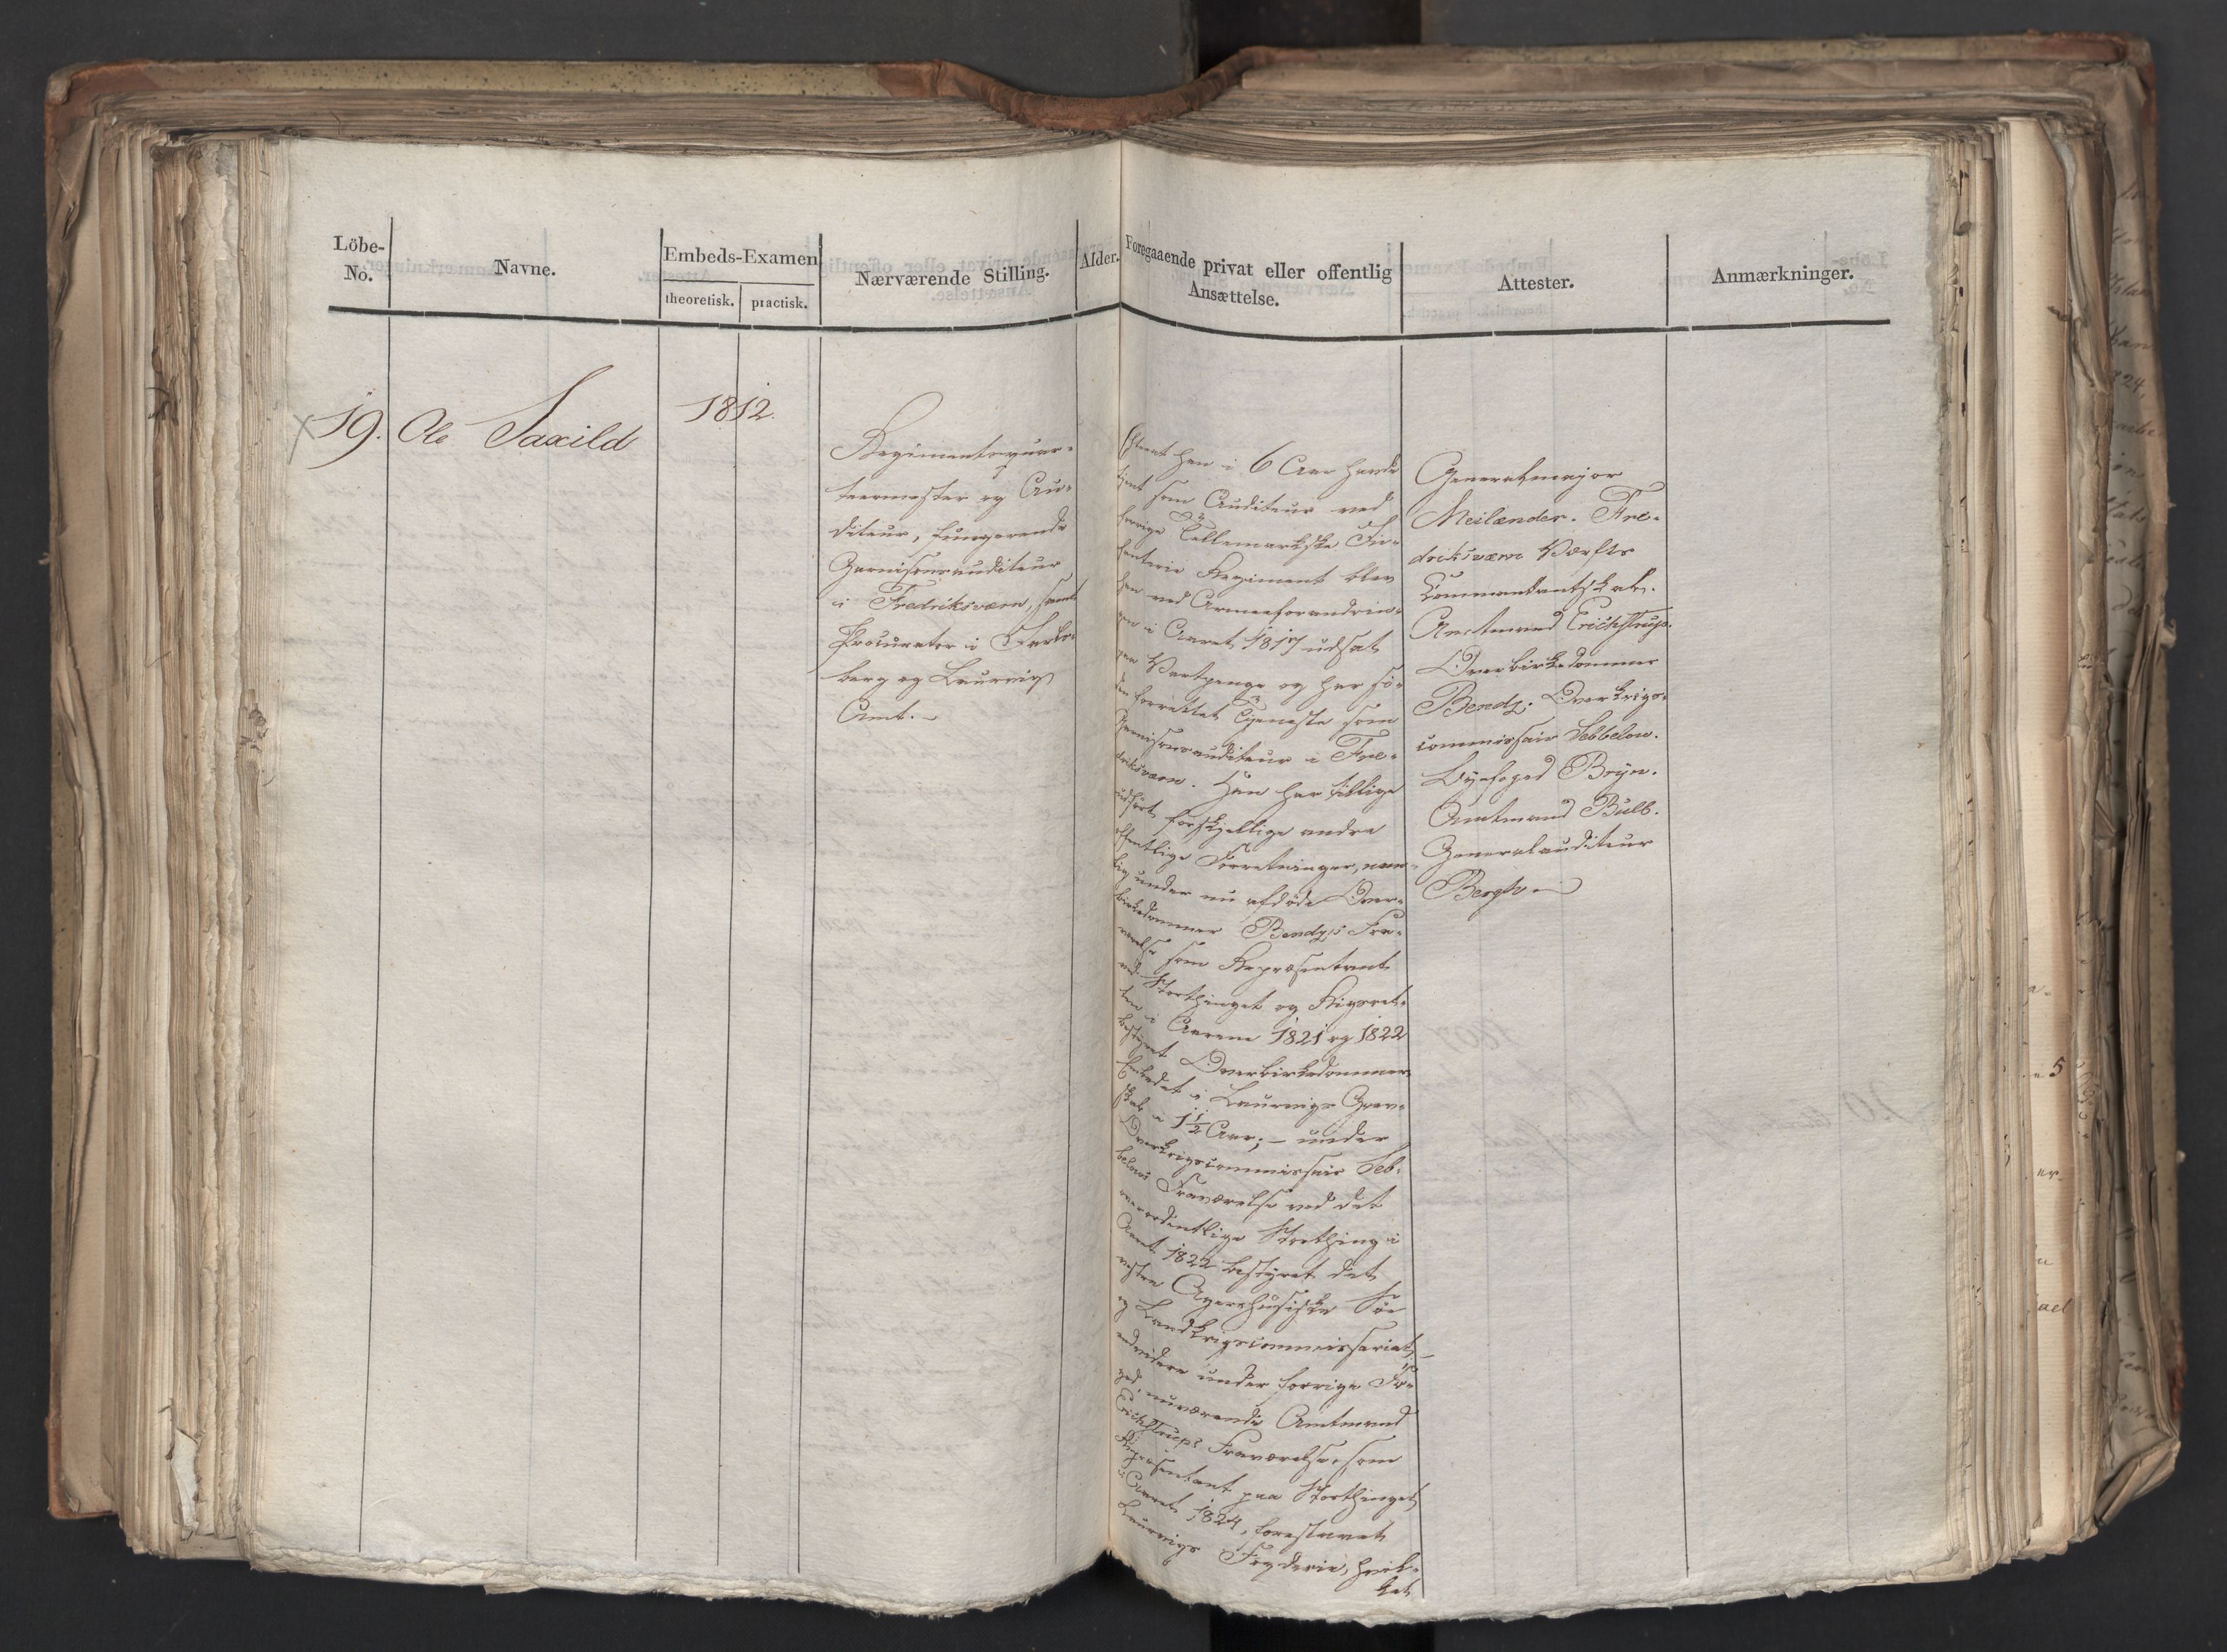 Löbe-
No.
Navne.
Embeds-Examen
theoretisk.
practisk.
Nærværende Stilling.
Alder.
Foregaaende privat eller offentlig
Ansættelse.
Attester.
Anmærkninger.
19. Ole Saxild
1812.
Regimentsquar-
teermester og Au-
diteur, fungerende
Garnisonsauditeur
i Fredriksværn, samt
Procurator i Jarls-
berg og Laurvigs
Amt.
Efterat han i 6 Aar havde
tjent som Auditeur ved
forrige Tellemarkske In-
fanterie Regiment blev
han ved Armeeforandrin-
gen i Aaret 1817 udsat
paa Vartpenge og har si-
den forrettet Tjeneste som
Garnisonsauditeur i Fre-
driksværn. Han har tillige
udført forskjellige andre
offentlige Forretninger, nem-
lig under nu afdøde Over-
birkedommer Bendz's Fra-
værelse som Repræsentant
ved Storthinget og Rigsret-
ten i Aarene 1821 og 1822
bestyret Overbirkedommer
Embedet i Laurvigs Grev-
skab i 1½ Aar; – under
Overkrigscommissair Seb-
belows Fraværelse ved det
overordentlige Storthing i
Aaret 1822 bestyret det
vestre Agershusiske Søe
og Landkrigscommissariat, –
endvidere under forrige Fo-
ged, nuværende Amtmand
Erichstrups Fraværelse som
Repræsentant paa Storthinget
i Aaret 1824, forestaaet
Laurvigs Fogderie, hvil-
ket
Generalmajor
Meilænder. Fre-
driksværns Værfts
Commandantskab.
Amtmand Erichstrup.
Overbirkedommer
Bendz. Overkrigs-
commissair Sebbelow.
Byefoged Bryn.
Amtmand Bull.
Generalauditeur
Bergh